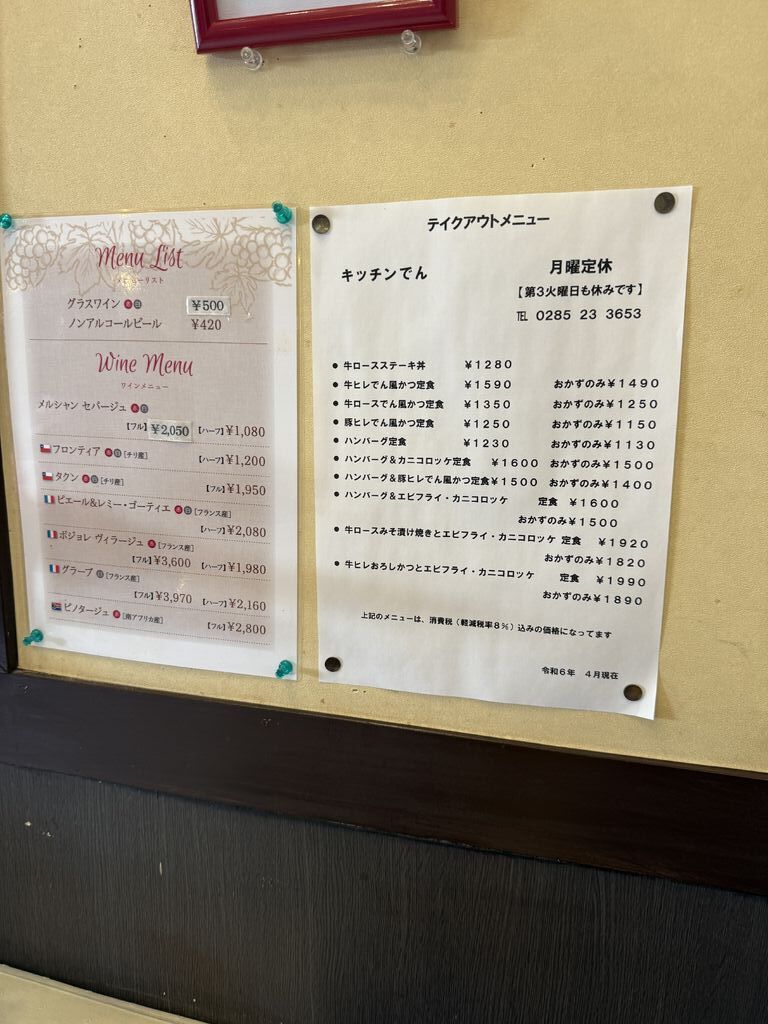 Menu List
メニューリスト
グラスワイン 赤 白 ¥500
ノンアルコールビール ¥420
Wine Menu
ワインメニュー
メルシャン セパージュ 赤 白
【フル】¥2,050 【ハーフ】¥1,080
フロンティア 赤 白 [チリ産]
【ハーフ】¥1,200
タクン 赤 白 [チリ産]
【フル】¥1,950
ピエール&レミー・ゴーティエ 赤 白 [フランス産]
【ハーフ】¥2,080
ボジョレ ヴィラージュ 赤 [フランス産]
【フル】¥3,600 【ハーフ】¥1,980
グラーブ 白 [フランス産]
【フル】¥3,970 【ハーフ】¥2,160
ピノタージュ 赤 [南アフリカ産]
【フル】¥2,800
テイクアウトメニュー
キッチンでん 月曜定休
【第3火曜日も休みです】
℡ 0285 23 3653
● 牛ロースステーキ丼 ¥1280
● 牛ヒレでん風かつ定食 ¥1590 おかずのみ¥1490
● 牛ロースでん風かつ定食 ¥1350 おかずのみ¥1250
● 豚ヒレでん風かつ定食 ¥1250 おかずのみ¥1150
● ハンバーグ定食 ¥1230 おかずのみ¥1130
● ハンバーグ&カニコロッケ定食 ¥1600 おかずのみ¥1500
● ハンバーグ&豚ヒレでん風かつ定食¥1500 おかずのみ¥1400
● ハンバーグ&エビフライ・カニコロッケ 定食 ¥1600
おかずのみ¥1500
● 牛ロースみそ漬け焼きとエビフライ・カニコロッケ 定食 ¥1920
おかずのみ¥1820
● 牛ヒレおろしかつとエビフライ・カニコロッケ 定食 ¥1990
おかずのみ¥1890
上記のメニューは、消費税(軽減税率8%)込みの価格になってます
令和6年 4月現在